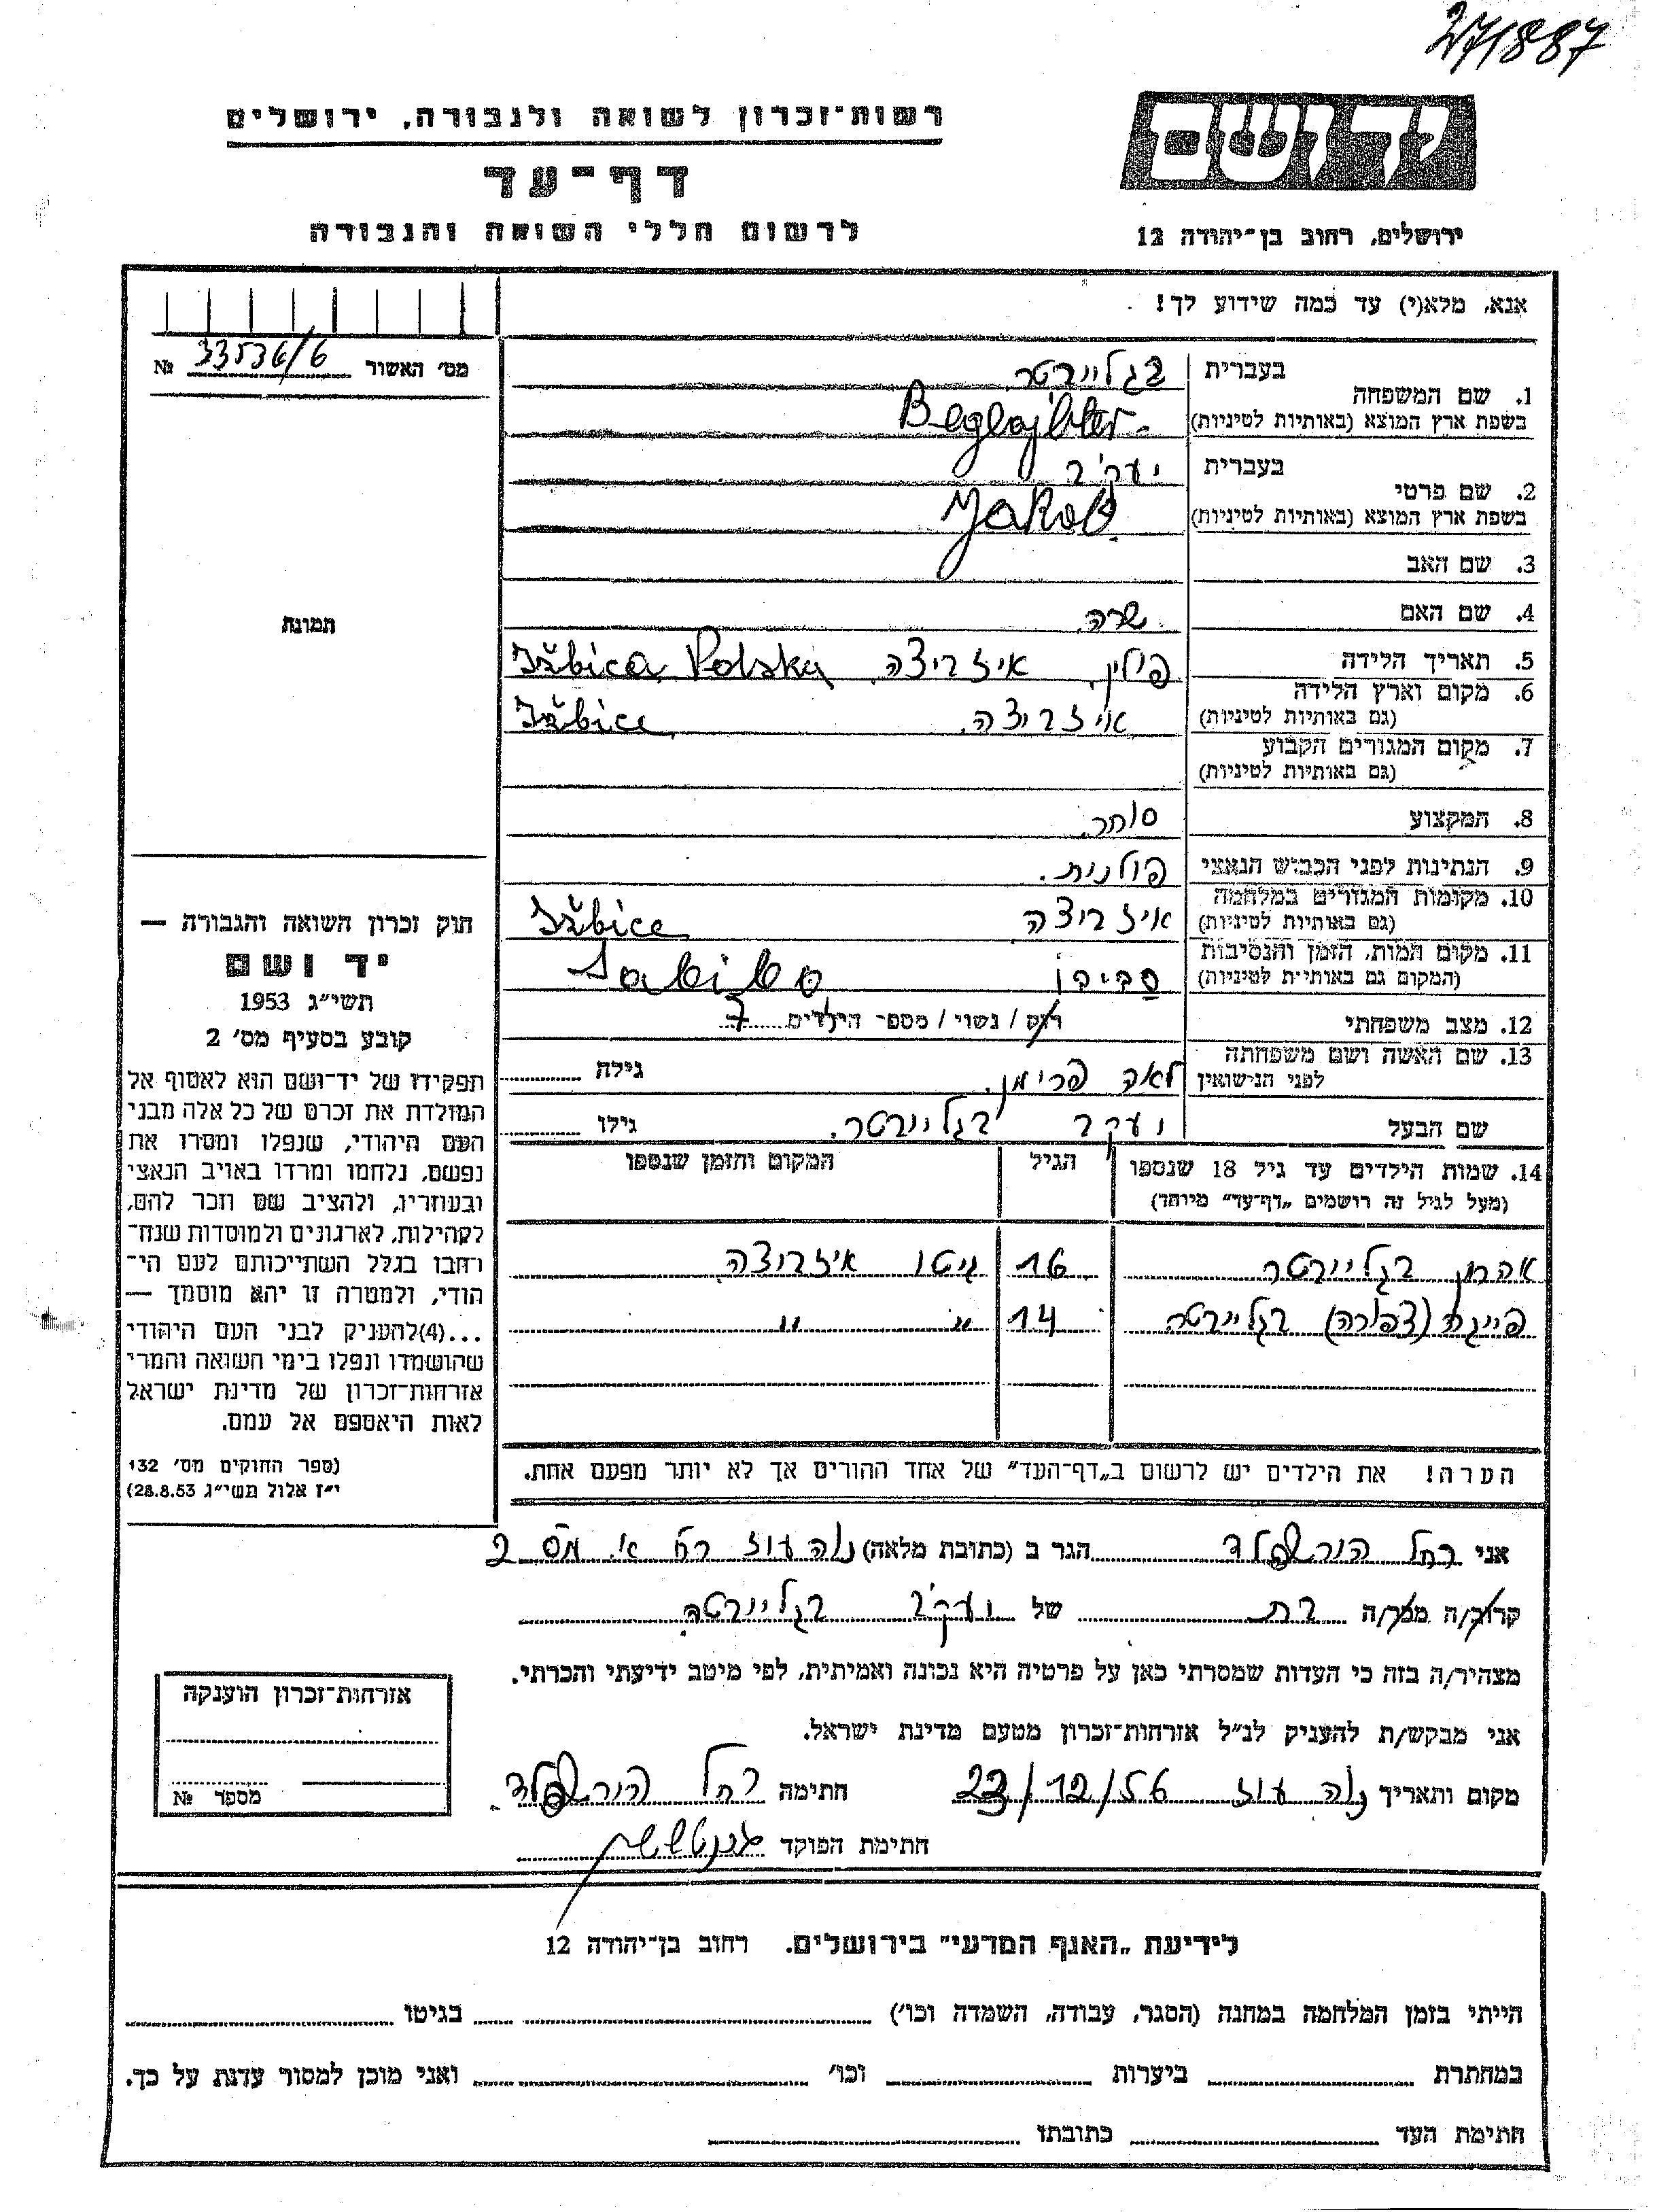 27/1887
יד ושם
רשות־זכרון לשואה ולגבורה, ירושלים
דף־עד
לרשום חללי השואה והגבורה
ירושלים, רחוב בן־יהודה 12
אנא, מלא(י) עד כמה שידוע לך!
מס׳ האשור 33536/6 №
תמונת
חוק זכרון השואה והגבורה —
יד ושם
תשי״ג 1953
קובע בסעיף מס׳ 2
תפקידו של יד־ושם הוא לאסוף אל
המולדת את זכרם של כל אלה מבני
העם היהודי, שנפלו ומסרו את
נפשם, נלחמו ומרדו באויב הנאצי
ובעוזריו, ולהציב שם וזכר להם,
לקהילות, לארגונים ולמוסדות שנח־
רבו בגלל השתייכותם לעם הי־
הודי, ולמטרה זו יהא מוסמך —
...(4)להעניק לבני העם היהודי
שהושמדו ונפלו בימי השואה והמרי
אזרחות־זכרון של מדינת ישראל
לאות היאספם אל עמם.
(ספר החוקים מס׳ 132
י״ז אלול תשי״ג 28.8.53)
1. שם המשפחה בעברית בגלייבטר
בשפת ארץ המוצא (באותיות לטיניות) Beglajbter
2. שם פרטי בעברית יעקב
בשפת ארץ המוצא (באותיות לטיניות) Jakob
3. שם האב
4. שם האם שרה
5. תאריך הלידה
6. מקום וארץ הלידה פולין, איזביצה, Ižbica Polska
(גם באותיות לטיניות)
7. מקום המגורים הקבוע איזביצה. Ižbice
(גם באותיות לטיניות)
8. המקצוע סוחר
9. הנתינות לפני הכבוש הנאצי פולנית.
10. מקומות המגורים במלחמה איזביצה Ižbice
(גם באותיות לטיניות)
11. מקום המות, הזמן והנסיבות סביבו Sabibo
(המקום גם באותיות לטיניות)
12. מצב משפחתי רוק / נשוי / מספר הילדים 7
13. שם האשה ושם משפחתה לאה פרימן. גילה
לפני הנישואין
שם הבעל יעקב בגלייבטר. גילו
14. שמות הילדים עד גיל 18 שנספו הגיל המקום והזמן שנספו
(מעל לגיל זה רושמים „דף־עד״ מיוחד)
אהרון בגלייבטר 16 גיטו איזביצה
פייגה (צפורה) בגלייבטר 14 ״ ״
הערה! את הילדים יש לרשום ב„דף־העד״ של אחד ההורים אך לא יותר מפעם אחת.
אני רחל הירשפלד הגר ב (כתובת מלאה) נוה עוז רח׳ א׳. מס 2
קרוב/ה מכר/ה בת של יעקב בגלייבטר
מצהיר/ה בזה כי העדות שמסרתי כאן על פרטיה היא נכונה ואמיתית, לפי מיטב ידיעתי והכרתי.
אני מבקש/ת להעניק לנ״ל אזרחות־זכרון מטעם מדינת ישראל.
מקום ותאריך נוה עוז 23/12/56 חתימה רחל הירשפלד.
חתימת הפוקד
אזרחות־זכרון הוענקה
מספר №
לידיעת „האגף המדעי״ בירושלים. רחוב בן־יהודה 12
הייתי בזמן המלחמה במחנה (הסגר, עבודה, השמדה וכו׳) בגיטו
במחתרת ביערות וכו׳ ואני מוכן למסור עדות על כך.
חתימת העד כתובתו